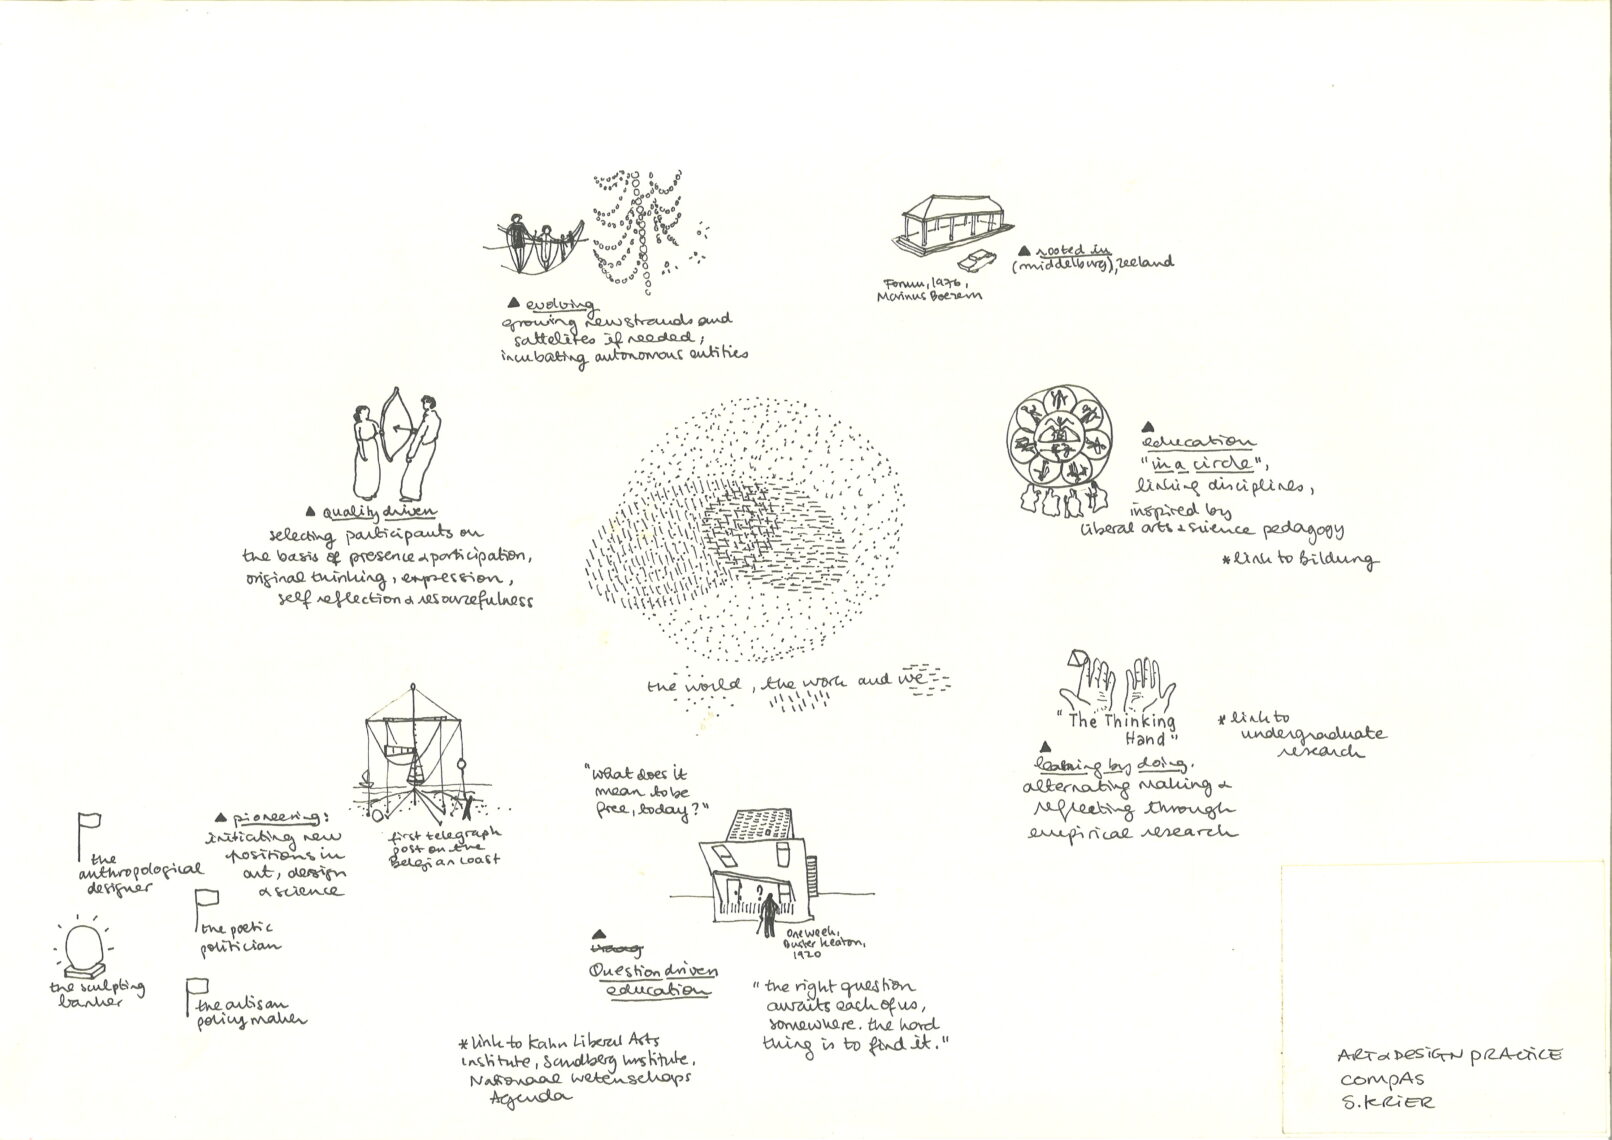 ▲ evolving
growing new strands and
sattelites if needed;
incubating autonomous entities
Forum, 1976,
Marinus Boezem
▲ rooted in
(middelburg), zeeland
▲ quality driven
selecting participants on
the basis of presence & participation,
original thinking, expression,
self reflection & resourcefulness
▲
education
"in a circle",
linking disciplines,
inspired by
liberal arts & science pedagogy
*link to Bildung
the world, the work and we
"The Thinking
Hand"
▲
learning by doing.
alternating making &
reflecting through
empirical research
*link to
undergraduate
research
▲ pioneering:
initiating new
positions in
art, design
& science
first telegraph
post on the
Belgian coast
the
anthropological
designer
the poetic
politician
the sculpting
banker
the artisan
policy maker
"What does it
mean to be
free, today?"
?
one week,
Buster Keaton,
1920
▲
Question driven
education
"the right question
awaits each of us,
somewhere. the hard
thing is to find it."
*link to Kahn Liberal Arts
Institute, Sandberg Institute,
Nationaal Wetenschaps
Agenda
ART & DESIGN PRACTICE
COMPAS
S. KRIER